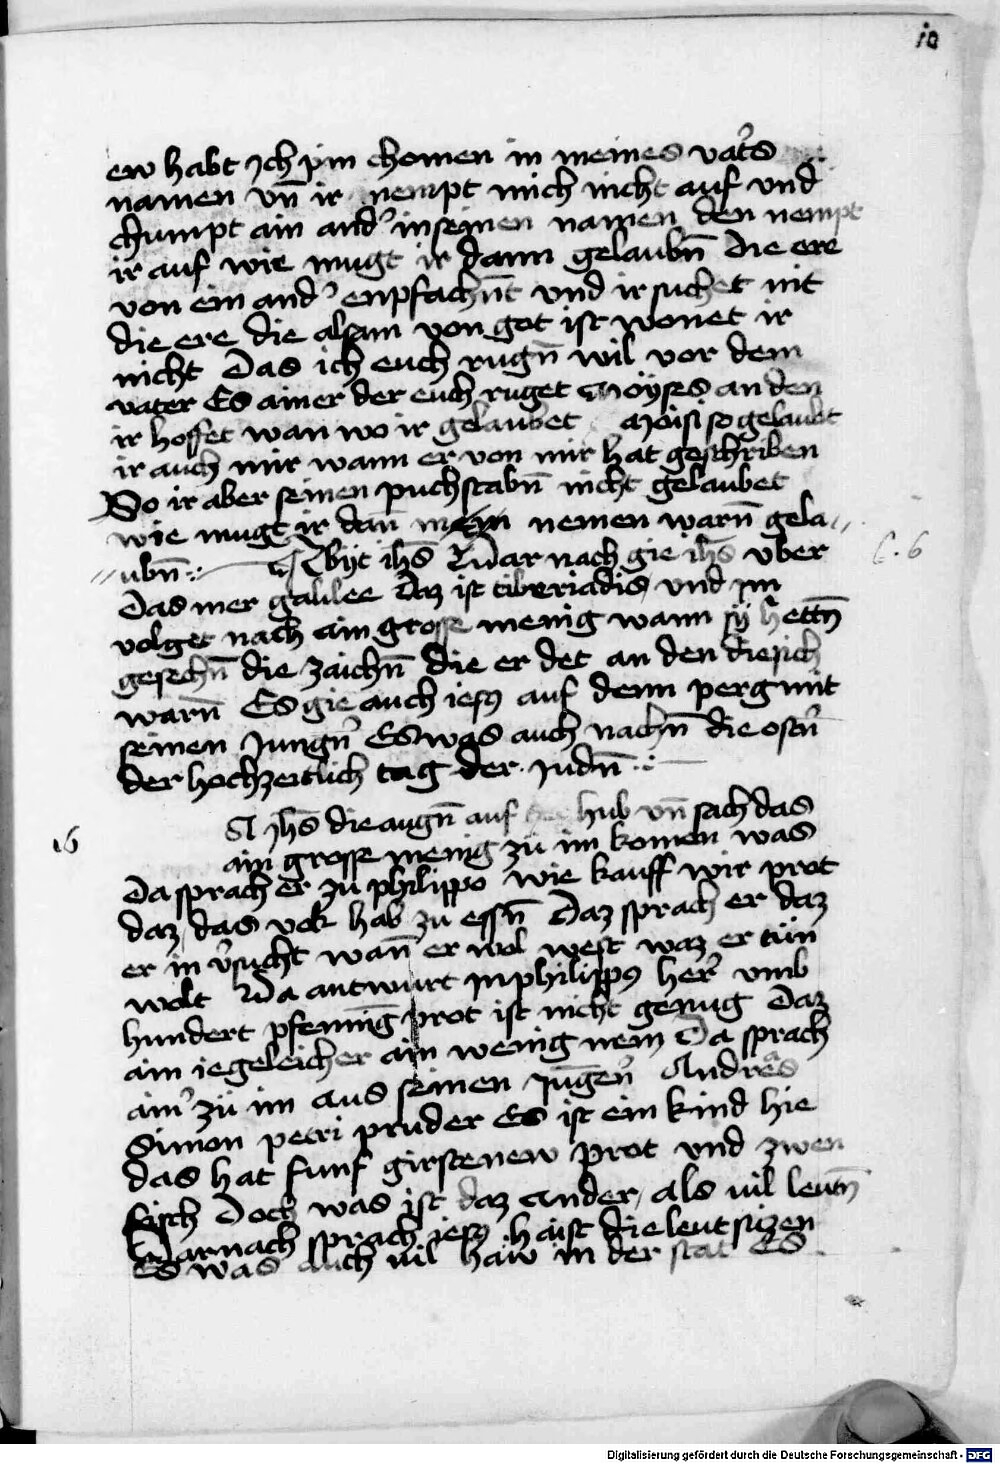 10
ew habt Jch pin chomen in meines vat's
namen vn̄ ir nempt mich nicht auf vnd
chumpt ain and' in seinen namen den nempt
ir auf wie mugt ir dann gelaubn̄ Die ere
von ein and' enpfachn̄t vnd ir suchet nit
die ere die alsam von got ist wonet ir
nicht Das ich euch rugn̄ wil vor dem
vater Es ainer der euch ruget Moÿses an den
ir hoffet wan wo ir gelaubet Moisi so gelaubt
ir auch mir wann er von mir hat geschriben
So ir aber seinen puchstabn̄ nicht gelaubet
wie mugt ir dan̄ nemen warn̄ gela〃
〃ubn̄ Abijt ihs̄ Darnach gie ihs̄ vber
c. 6
Das mer galilee Daz ist tiberiadis vnd im
volget nach ain grosse menig wann sÿ hettn̄
gesechn̄ die zaichn̄ die er det an den die sich
warn̄ Es gie auch iesꝯ auf denn perg mit
seinen Jungn̄' Es was auch nachn̄ die ostn̄'
der hochzeitlich tag der Judn̄
16
Jhs̄ die augn̄ auf hub vn̄ sach das
ain grosse menig zü im komen was
Da sprach er zu philippo wie kauff wir prot
daz das volk hab zu essn̄ Daz sprach er daz
er in v'sucht wan̄ er wol west waz er tün
wolt Da antwurt In philippꝯ her' vmb
hundert pfennīg prot ist nicht genug Daz
ain iegeleicher ain wenig nem Da sprach
ain' zü im aus seinen Jūgen̄' Andreas
Simon petri pruder Es ist ein kind hie
das hat funf girstenew prot vnd zwen
fisch Doch was ist daz ander als vil leutn̄
Darnach sprach iesꝯ haist die leut sizen
Es was auch vil haiw in der stat Es
Digitalisierung gefördert durch die Deutsche Forschungsgemeinschaft - DFG